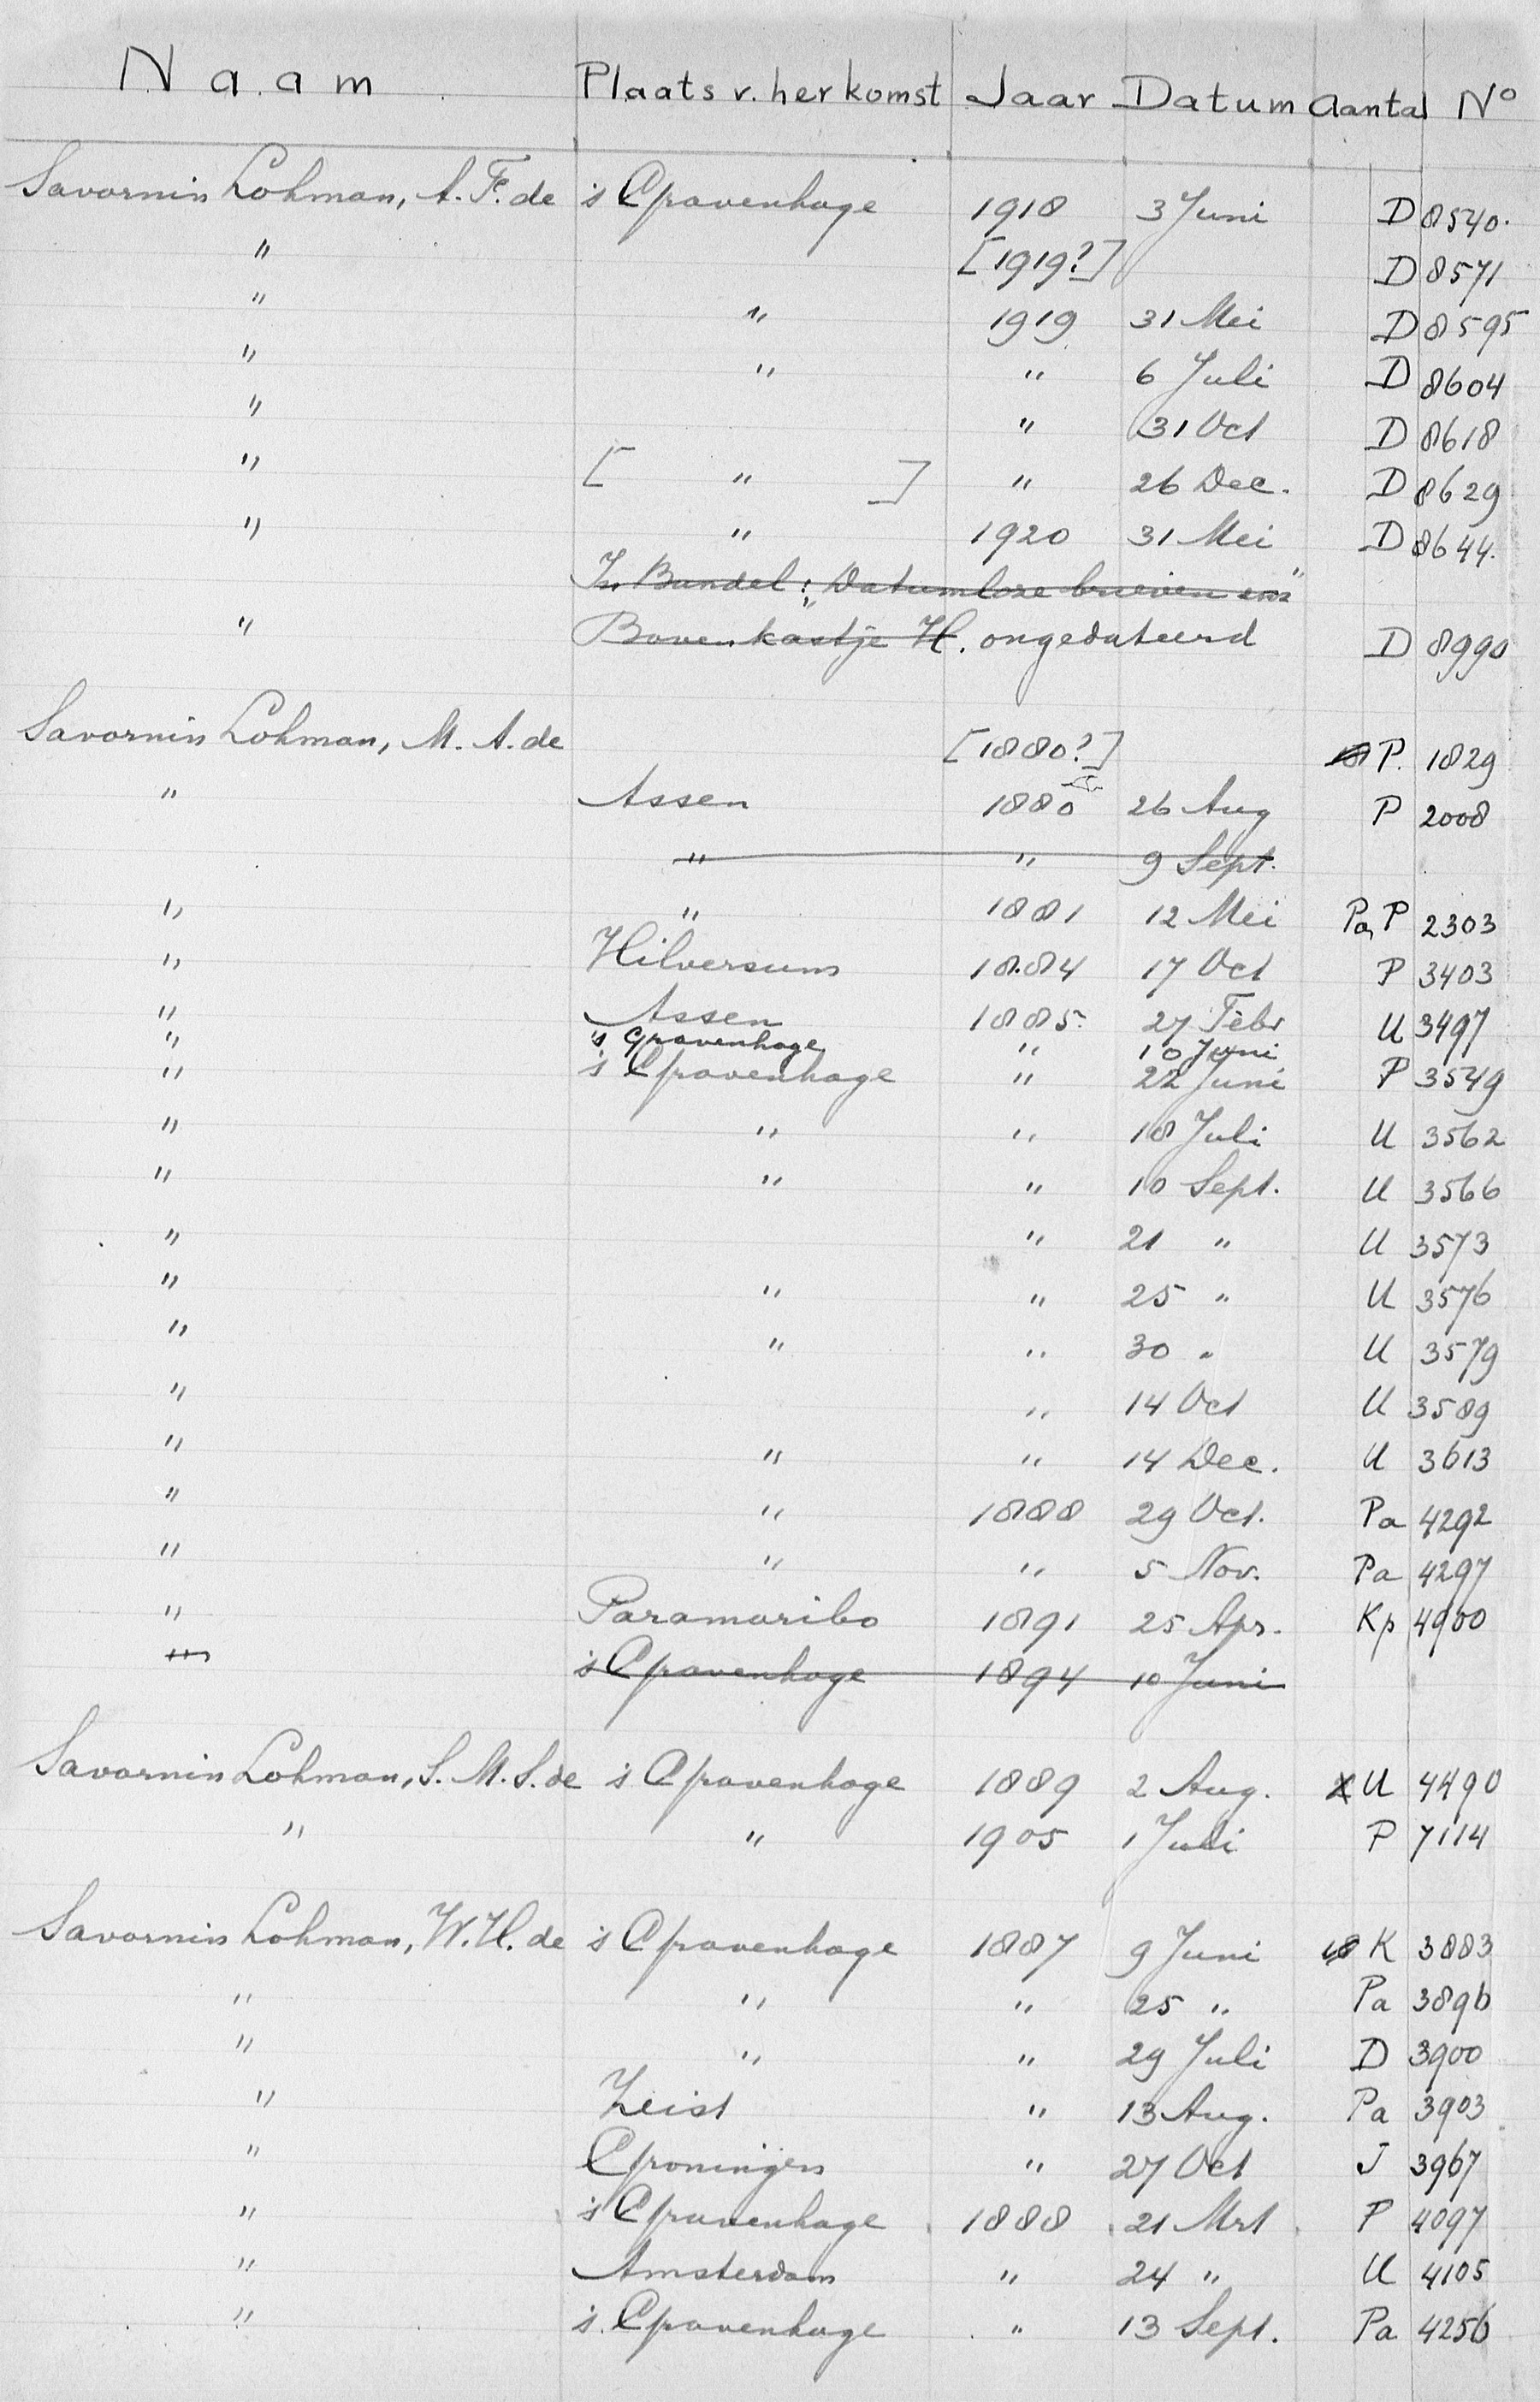 Naam Plaats v. herkomst Jaar Datum Aantal No
Savornin Lohman, A. F. de 's Gravenhage 1918 3 Juni D 8540.
" [1919?] D 8571
" " 1919 31 Mei D 8595
" " " 6 Juli D 8604
" " 31 Oct D 8618
" [ " ] " 26 Dec. D 8629
" " 1920 31 Mei D 8644.
Z. Bundel: "Datumloze brieven enz"
" Boven kastje H. ongedateerd D 8990
Savornin Lohman, M. A. de [1880?] P. 1829
" Assen 1880 26 Aug P 2008
" " 9 Sept.
" " 1881 12 Mei Pa, P 2303
" Hilversum 1884 17 Oct P 3403
" Assen 1885. 27 Febr U 3497
" 's Gravenhage " 10 Juni
" 's Gravenhage " 22 Juni P 3549
" " " 18 Juli U 3562
" " " 10 Sept. U 3566
" " 21 " U 3573
" " " 25 " U 3576
" " " 30 " U 3579
" " 14 Oct U 3589
" " " 14 Dec. U 3613
" " 1888 29 Oct. Pa 4292
" " " 5 Nov. Pa 4297
" Paramaribo 1891 25 Apr. Kp 4900
" 's Gravenhage 1894 10 Juni
Savornin Lohman, S. M. S. de 's Gravenhage 1889 2 Aug. U 4490
" " 1905 1 Juli P 7114
Savornin Lohman, W. H. de 's Gravenhage 1887 9 Juni K 3883
" " " 25 " Pa 3896
" " " 29 Juli D 3900
" Zeist " 13 Aug. Pa 3903
" Groningen " 27 Oct J 3967
" 's Gravenhage 1888 21 Mrt P 4097
" Amsterdam " 24 " U 4105
" 's Gravenhage " 13 Sept. Pa 4256